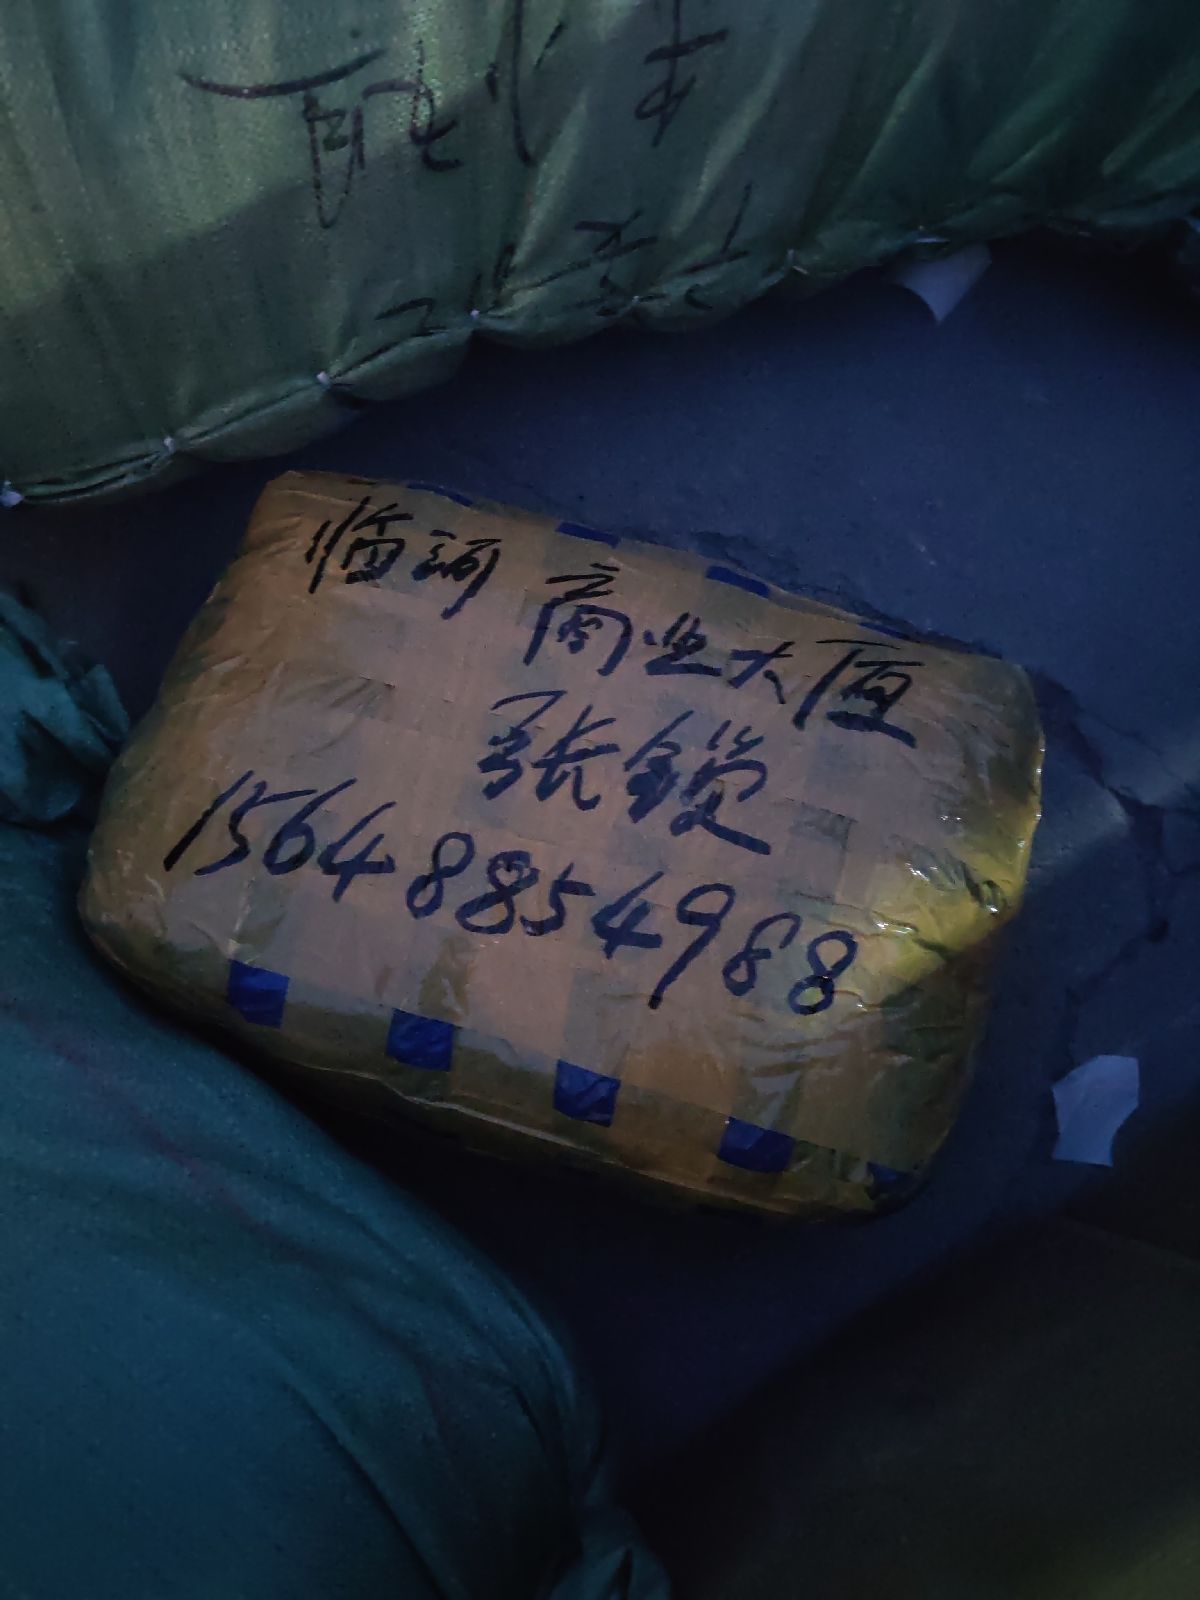 临河 商业大厦
张锁
15648854988